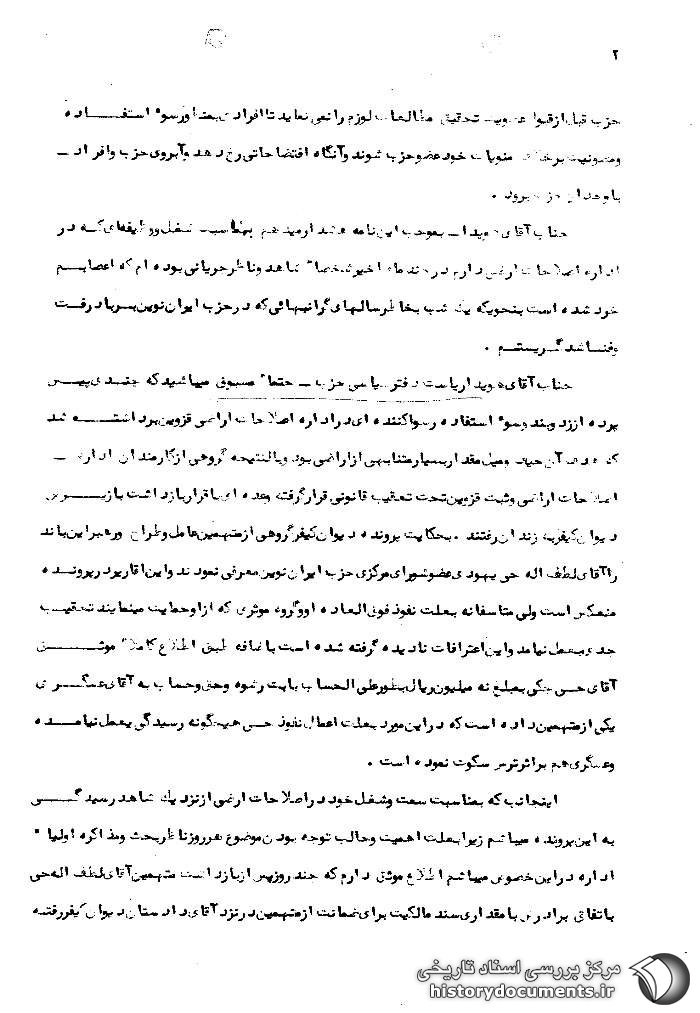 ۲
حزب قبل از قبول عضویت تحقیق و مطالعات لازم را نمی نماید تا افرادی بمنظور سوء استفاده
ومصونیت برخلاف منویات خود عضو حزب شوند وآنگاه افتضاحاتی رخ دهد وآبروی حزب وافراد ــ
باوجدان حزب برود .
جناب آقای هویدا ــ بموجب این نامه هشدار میدهم بمناسبت شغل ووظیفه‌ای که در
اداره اصلاحات ارضی دارم در چند ماه اخیر شخصا" شاهد وناظر جریانی بوده ام که اعصابم
خرد شده است بنحویکه یك شب بخاطر سالهای گرانبهائی که در حزب ایران نوین برباد رفت
وفنا شد گریستم .
جناب آقای هویدا ریاست دفتر سیاسی حزب ــ حتما" مسبوق میباشید که چندی پیش
پرده از زد وبند وسوء استفاده رسوا کننده ای در اداره اصلاحات ارضی قزوین برداشته شد
که هدف آن حیف ومیل مقدار بسیار متنابهی از اراضی بود وبالنتیجه گروهی از کارمندان اداره ــ
اصلاحات ارضی وثبت قزوین تحت تعقیب قانونی قرار گرفته وعده ای با قرار بازداشت بازپرس
دیوان کیفر به زندان رفتند . بحکایت پرونده دیوان کیفر گروهی از متهمین عامل وطراح ورهبر این باند
را آقای لطف اله حی یهودی عضو شورای مرکزی حزب ایران نوین معرفی نمودند واین اقاریر در پرونده
منعکس است ولی متاسفانه بعلت نفوذ فوق العاده او وگروه موثری که از او حمایت مینمایند تعقیب
جدی بعمل نیامد واین اعترافات نادیده گرفته شده است باضافه طبق اطلاع کاملا" موثق
آقای حی چکی بمبلغ نه میلیون ریال بطور علی الحساب بابت رشوه وحق وحساب به آقای عسگری
یکی از متهمین داده است که در این مورد بعلت اعمال نفوذ حی هیچگونه رسیدگی بعمل نیامده
وعسگری هم بر اثر ترس سکوت نموده است .
اینجانب که بمناسبت سمت وشغل خود در اصلاحات ارضی از نزدیك شاهد رسیدگی
به این پرونده میباشم زیرا بعلت اهمیت وجالب توجه بودن موضوع هر روز ناظر بحث ومذاکره اولیاء
اداره در این خصوص میباشم اطلاع موثق دارم که چند روز پس از بازداشت متهمین آقای لطف اله حی
باتفاق برادرش با مقداری سند مالکیت برای ضمانت از متهمین در نزد آقای دادستان دیوان کیفر رفته
مرکز بررسی اسناد تاریخی
historydocuments.ir